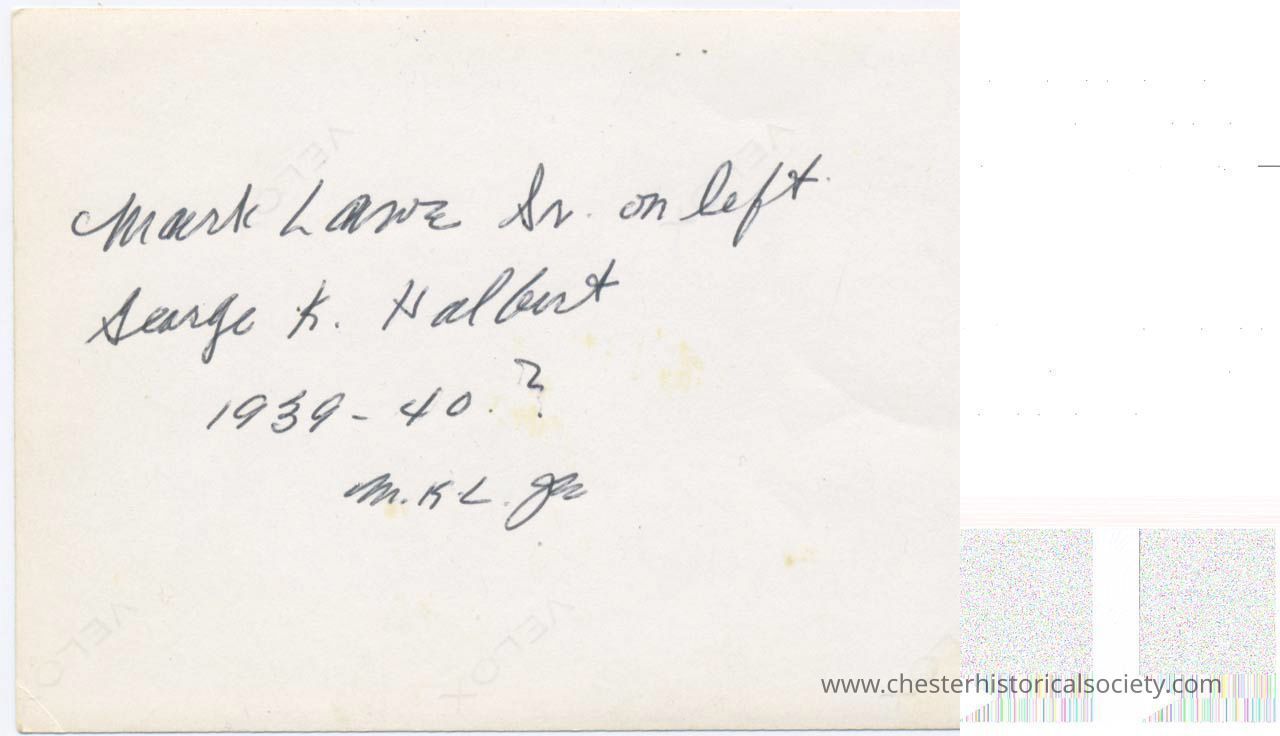 Mark Lawe Sr. on left.
George K. Halbert
1939-40.?
M.K.L. Jr
VELOX
VELOX
VELOX
VELOX
www.chesterhistoricalsociety.com